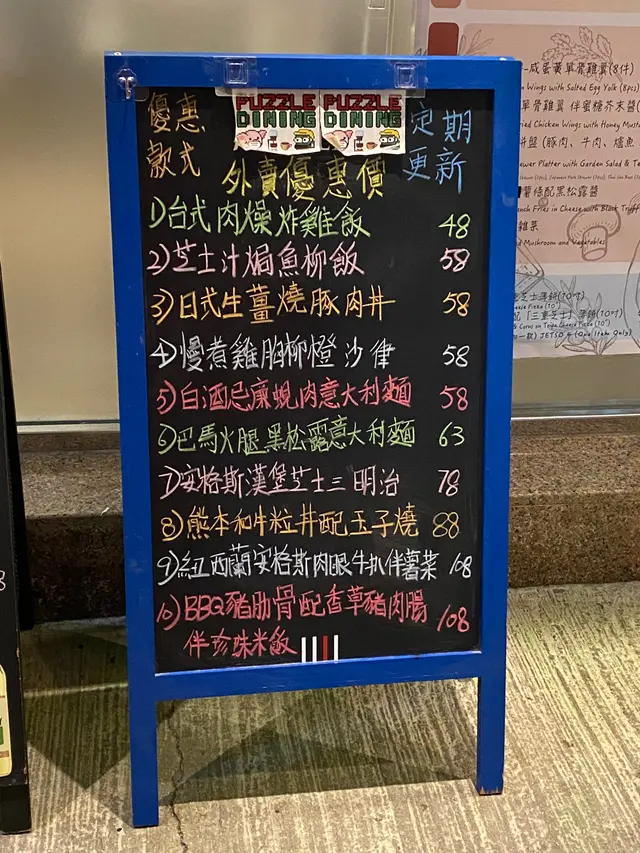 優惠
款式
PUZZLE
DINING
PUZZLE
DINING
定期
更新
外賣優惠價
1)台式肉燥炸雞飯 48
2)芝士汁焗魚柳飯 58
3)日式生薑燒豚肉丼 58
4)慢煮雞胸柳橙沙律 58
5)白酒忌廉蜆肉意大利麵 58
6)巴馬火腿黑松露意大利麵 63
7)安格斯漢堡芝士三明治 78
8)熊本和牛粒丼配玉子燒 88
9)紐西蘭安格斯肉眼牛扒伴薯菜 108
10)BBQ豬肋骨配香草豬肉腸 108
伴珍珠米飯
咸蛋黃單骨雞翼(8件)
Wings with Salted Egg Yolk (8pcs)
單骨雞翼 伴蜜糖芥末醬
Chicken Wings with Honey Must
拼盤 (豚肉、牛肉、爐魚
Platter with Garden Salad & T
薯條配黑松露醬
Fries in Cheese with Black Truff
雞菜
Mushroom and Vegetables
芝士薄餅(10吋)
Cheese Pizza (10")
配「三重芝士」薄餅(10吋)
& Corns on Triple Cheese Pizza (10")
JETSO & (One Item Only)